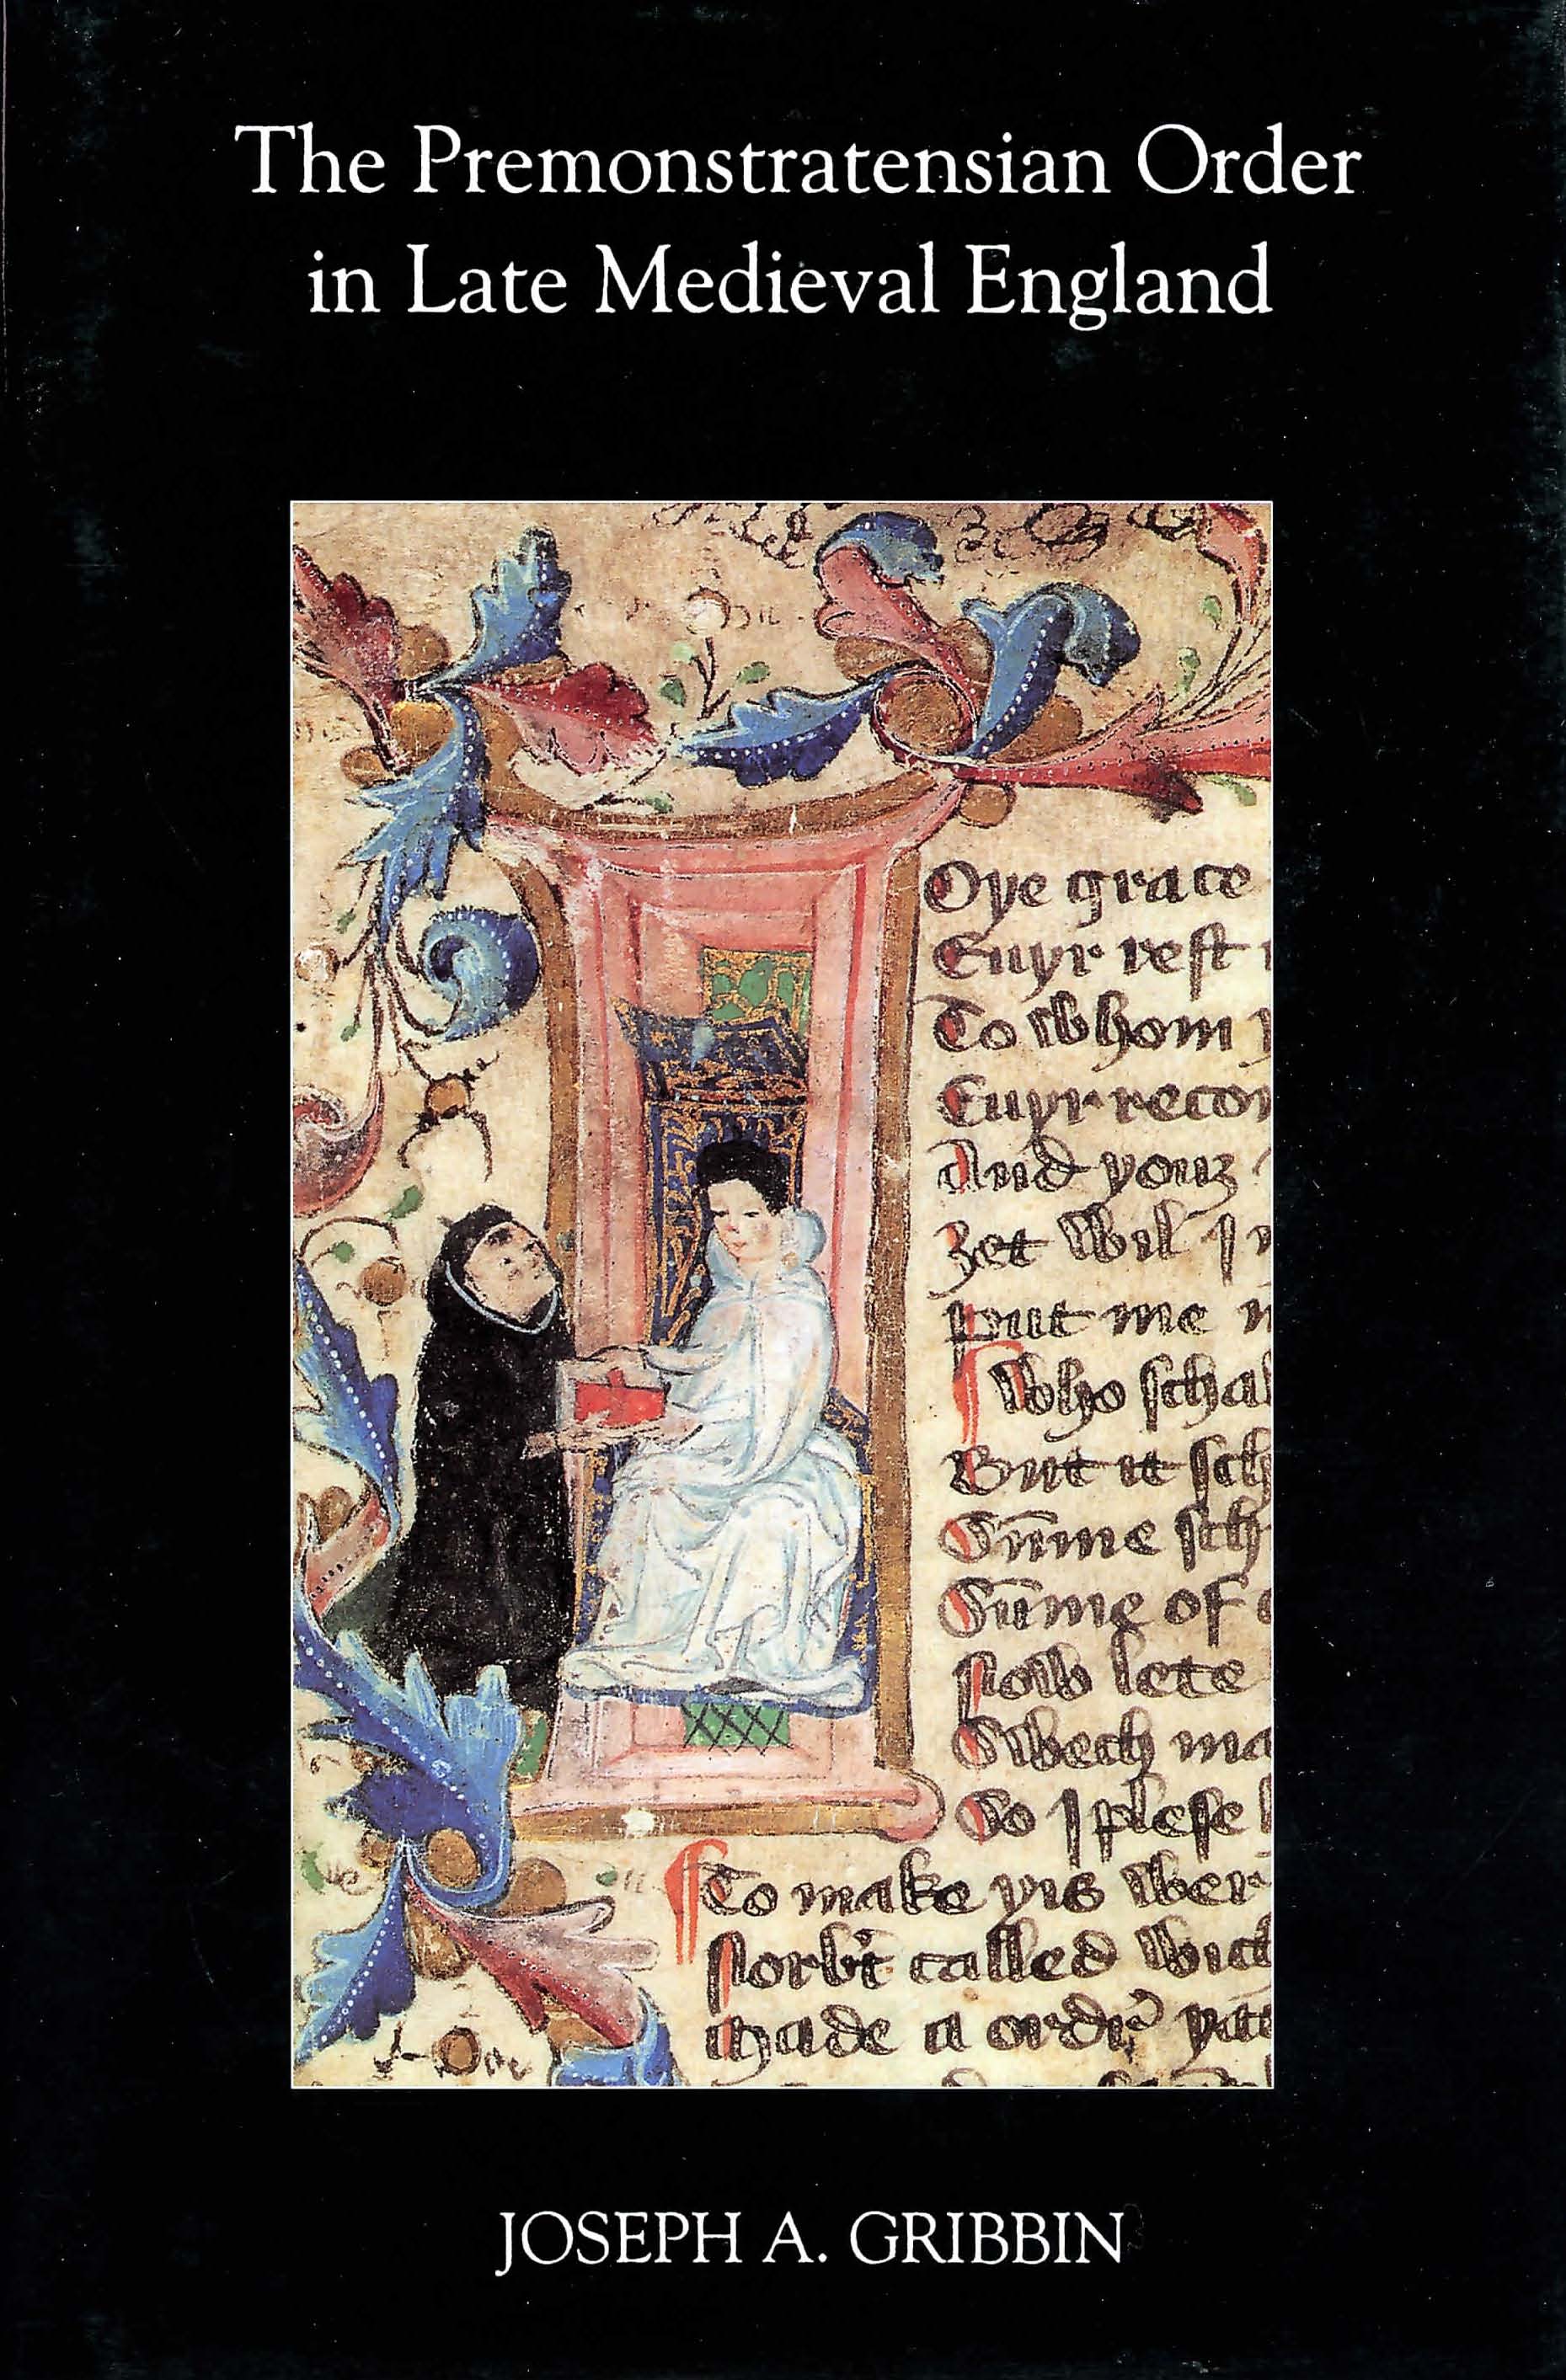 The Premonstratensian Order
in Late Medieval England
Oye grace
Euyr rest
To whom
Euyr recom
And youꝛ
ȝet wil I
Put me
Who schal
But it sch
Sūme sch
Sūme of
Now lete
Swech ma
So I plese
To make yis wer
Norbt called
Made a ordr yat
JOSEPH A. GRIBBIN